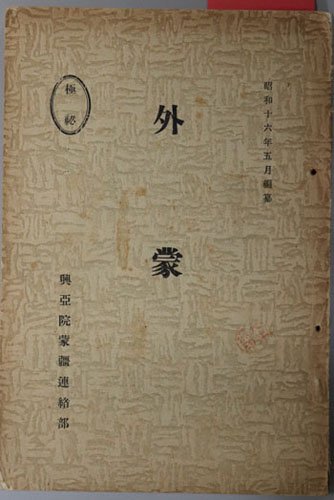 昭和十六年五月編纂
外蒙
興亞院蒙疆連絡部
極祕